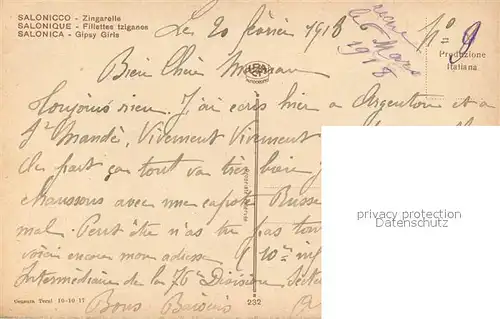 SALONICCO - Zingarelle
SALONIQUE - Fillettes tziganes
SALONICA - Gipsy Girls
Les 20 février 1918
reçue
le 6 Mars
1918
No 9
Produzione
Italiana
Bien Chère Maman
Toujours rien. J'ai écris hier a Argenton et a
St Mandé, Vivement Vivement
de part ça tout va très bien j
chaussons avec une capote Russe
mal. Peut être n'as tu pas
voici encore mon adresse 10me inf
Intermédiaire de la 76e Division, Secte
Bons Baisers
privacy protection
Datenschutz
Censura Terni 10-10 17
232